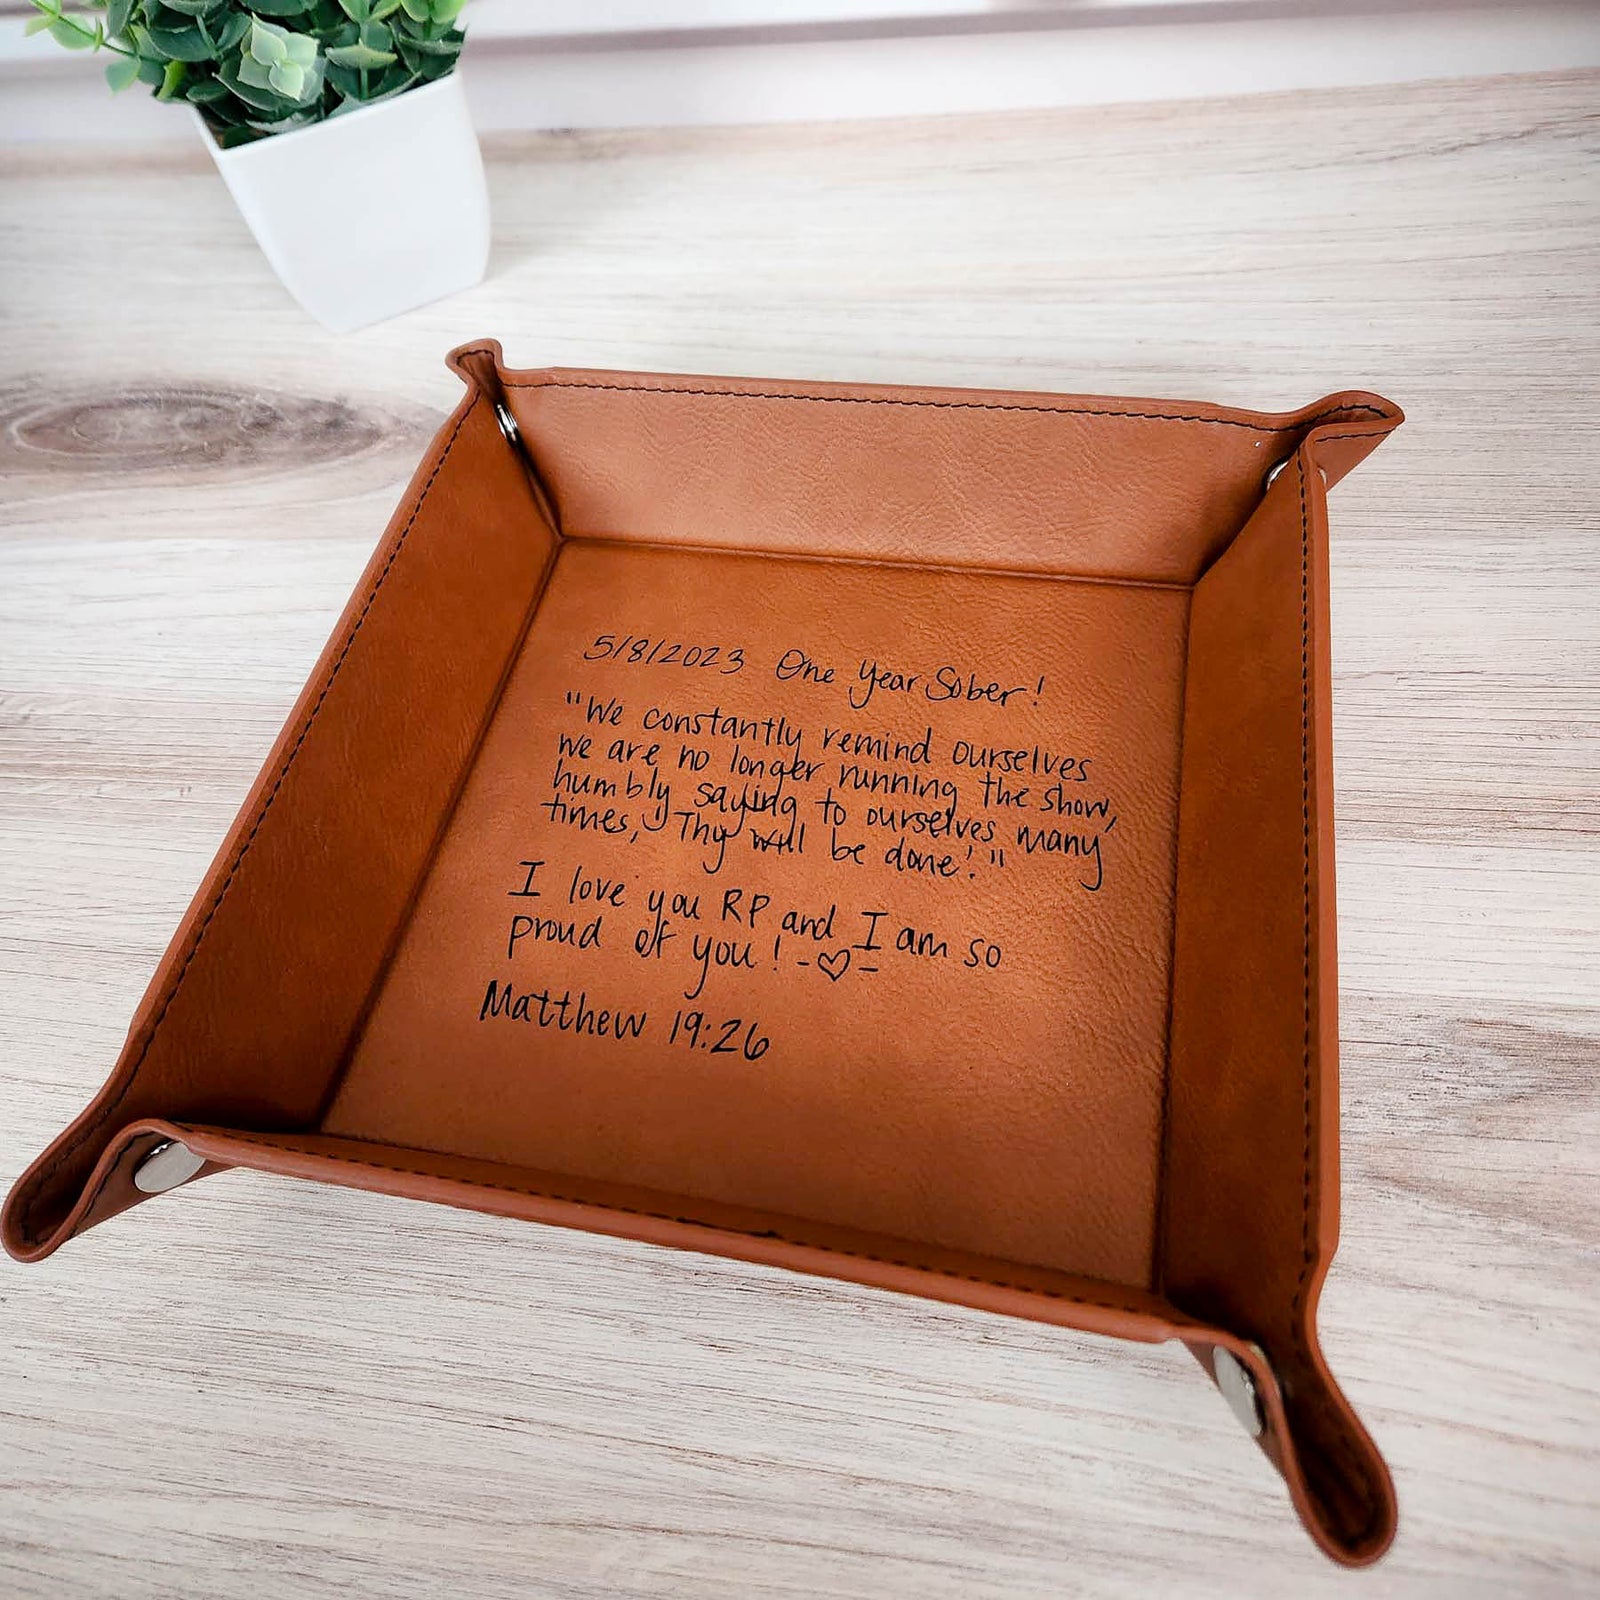 5/8/2023 One Year Sober!
"We constantly remind ourselves
we are no longer running the show,
humbly saying to ourselves many
times, 'Thy will be done!"
I love you RP and I am so
proud of you! -♡-
Matthew 19:26